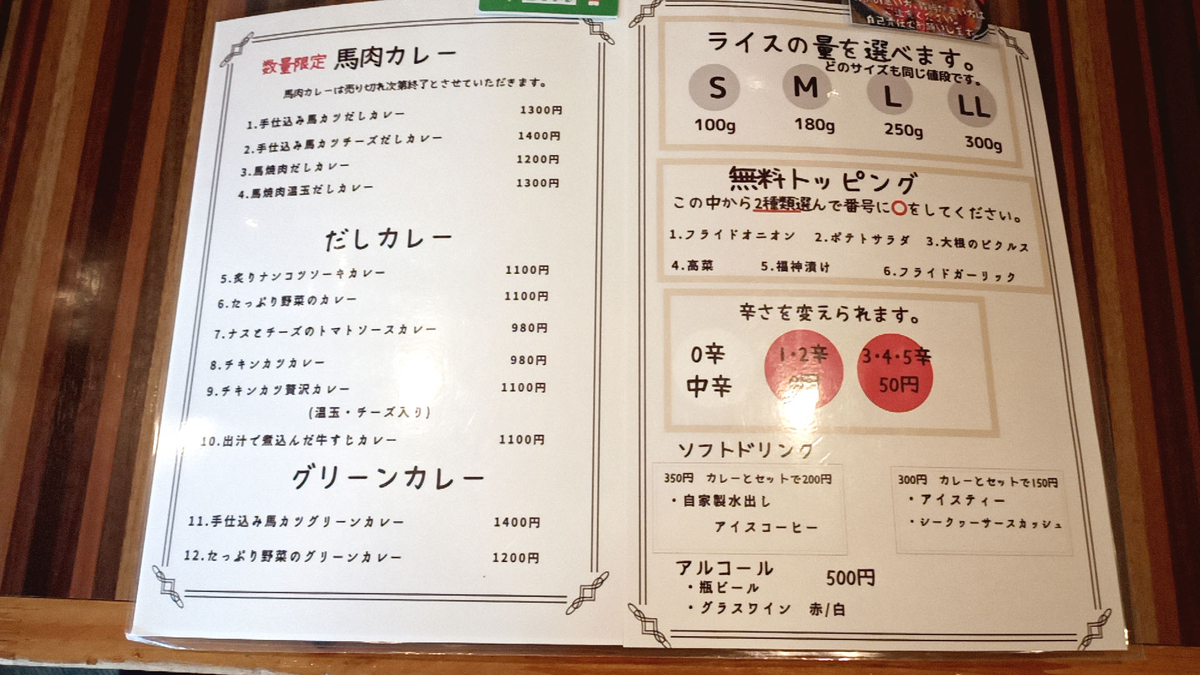 数量限定 馬肉カレー
馬肉カレーは売り切れ次第終了とさせていただきます。
1.手仕込み馬カツだしカレー 1300円
2.手仕込み馬カツチーズだしカレー 1400円
3.馬焼肉だしカレー 1200円
4.馬焼肉温玉だしカレー 1300円
だしカレー
5.炙りナンコツソーキカレー 1100円
6.たっぷり野菜のカレー 1100円
7.ナスとチーズのトマトソースカレー 980円
8.チキンカツカレー 980円
9.チキンカツ贅沢カレー 1100円
(温玉・チーズ入り)
10.出汁で煮込んだ牛すじカレー 1100円
グリーンカレー
11.手仕込み馬カツグリーンカレー 1400円
12.たっぷり野菜のグリーンカレー 1200円
ライスの量を選べます。
どのサイズも同じ値段です。
S M L LL
100g 180g 250g 300g
無料トッピング
この中から2種類選んで番号に○をしてください。
1.フライドオニオン 2.ポテトサラダ 3.大根のピクルス
4.高菜 5.福神漬け 6.フライドガーリック
辛さを変えられます。
0辛 1・2辛 3・4・5辛
中辛 50円
ソフトドリンク
350円 カレーとセットで200円
・自家製水出し
アイスコーヒー
300円 カレーとセットで150円
・アイスティー
・シークヮーサースカッシュ
アルコール 500円
・瓶ビール
・グラスワイン 赤/白